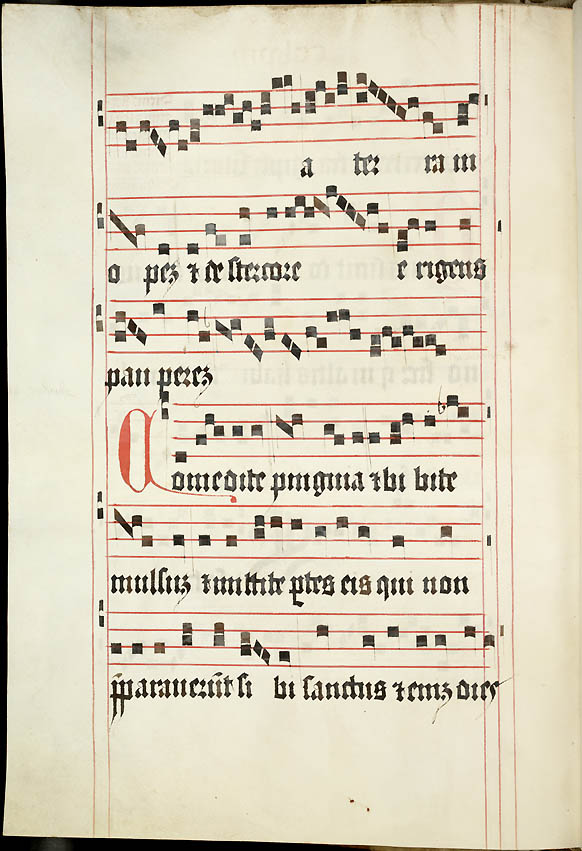 a ter ra in
o pez ⁊ de stercore e rigens
pau perez
Comedite pinguia ⁊ bi bite
mulsuz ⁊ mittite ꝑtes eis qui non
p̄parauerūt si bi sanctus ⁊ eniz dies